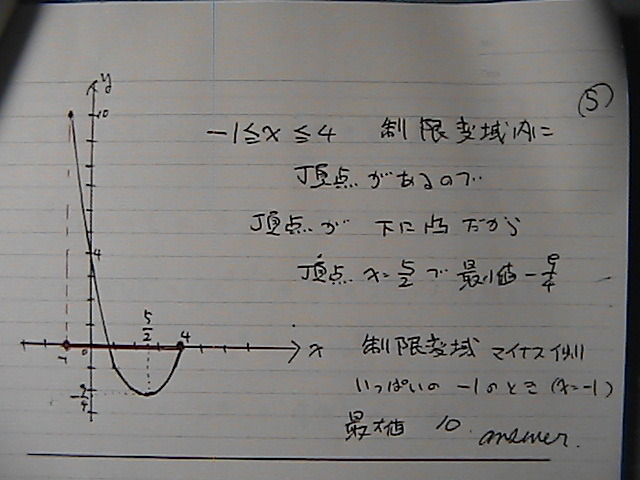 (5)
y
10
-1≦x≦4 制限変域内に
頂点があるので
頂点が 下に凸だから
4
頂点 x=5/2で 最小値-9/4
5/2
4
-1 0 x
制限変域 マイナス側
いっぱいの -1のとき(x=-1)
-9/4
最大値 10. answer.